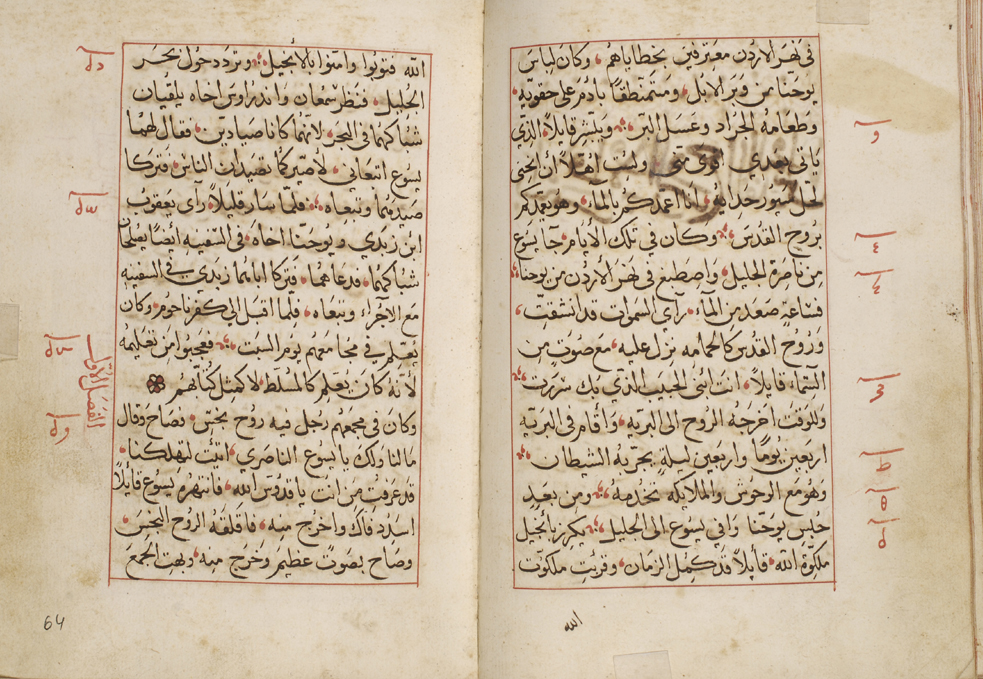 في نهر الاردن معترفين بخطاياهم وكان لباس
يوحنا من وبر الابل ومتمنطقًا بادم على حقويه
وطعامه الجراد وعسل البر ويبشر قايلاً الذي
ياتي بعدي اقوى مني ولست اهلاً ان انحني
لحل سيور حدايه انا اعمدكم بالماء وهو يعمدكم
بروح القدس وكان في تلك الايام جا يسوع
من ناصرة الجليل واصطبغ في نهر الاردن من يوحنا
فساعة صعد من الماء رآى السموات قد انشقت
وروح القدس كالحمامه نزل عليه مع صوت من
السماء قايلاً انت ابني الحبيب الذي بك سررت
وللوقت اخرجه الروح الى البريه واقام في البريه
اربعين يومًا واربعين ليلةٍ يجربه الشيطان
وهو مع الوحوش والملايكه تخدمه ومن بعد
حبس يوحنا وافي يسوع الى الجليل يكرز بانجيل
ملكوة الله قايلاً قد كمل الزمان وقربت ملكوت
الله
الله فتوبوا وامنوا بالانجيل وتردد حول بحر
الجليل فنظر سمعان واندراوس اخاه يلقيان
شباكهما في البحر لانهما كانا صيادين فقال لهما
يسوع اتبعاني لاصيركما تصيدان الناس فتركا
صيدهما وتبعاه فلما سار قليلاً رآى يعقوب
ابن زبدي ويوحنا اخاه في السفينه ايضًا يصلحان
شباكهما فدعاهما فتركا اباهما زبدي في السفينه
مع الاجراء وتبعاه فلما اقبل الى كفرناحوم وكان
يعلم في مجامعهم يوم السبت فعجبوا من تعليمه
لانه كان يعلم كالمسلط لا كمثل كتابهم
الفصل الاول
وكان في مجمعهم رجل فيه روح نجس فصاح وقال
ما لنا ولك يا يسوع الناصري اتيت لتهلكنا
قد عرفت من انت يا قدوس الله فانتهره يسوع قايلاً
اسدد فاك واخرج منه فاقلقه الروح النجس
وصاح بصوت عظيم وخرج منه وبهت الجمع
64